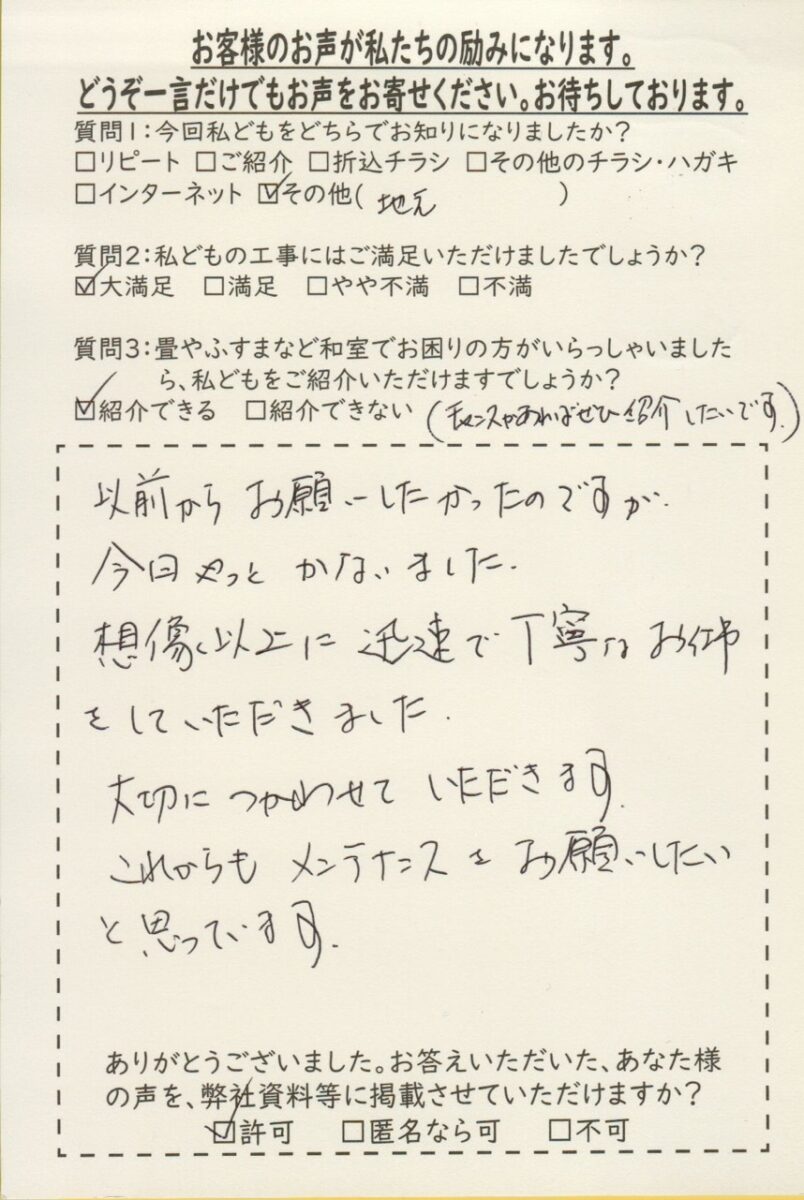 お客様のお声が私たちの励みになります。
どうぞ一言だけでもお声をお寄せください。お待ちしております。
質問1:今回私どもをどちらでお知りになりましたか?
□リピート □ご紹介 □折込チラシ □その他のチラシ・ハガキ
□インターネット ☑その他( 地元 )
質問2:私どもの工事にはご満足いただけましたでしょうか?
☑大満足 □満足 □やや不満 □不満
質問3:畳やふすまなど和室でお困りの方がいらっしゃいました
ら、私どもをご紹介いただけますでしょうか?
☑紹介できる □紹介できない (チャンスがあればぜひ紹介したいです。)
以前からお願いしたかったのですが、
今回やっと かないました。
想像以上に迅速で丁寧なお仕事
をしていただきました。
大切につかわせていただきます。
これからもメンテナンスをお願いしたい
と思っています。
ありがとうございました。お答えいただいた、あなた様
の声を、弊社資料等に掲載させていただけますか?
☑許可 □匿名なら可 □不可